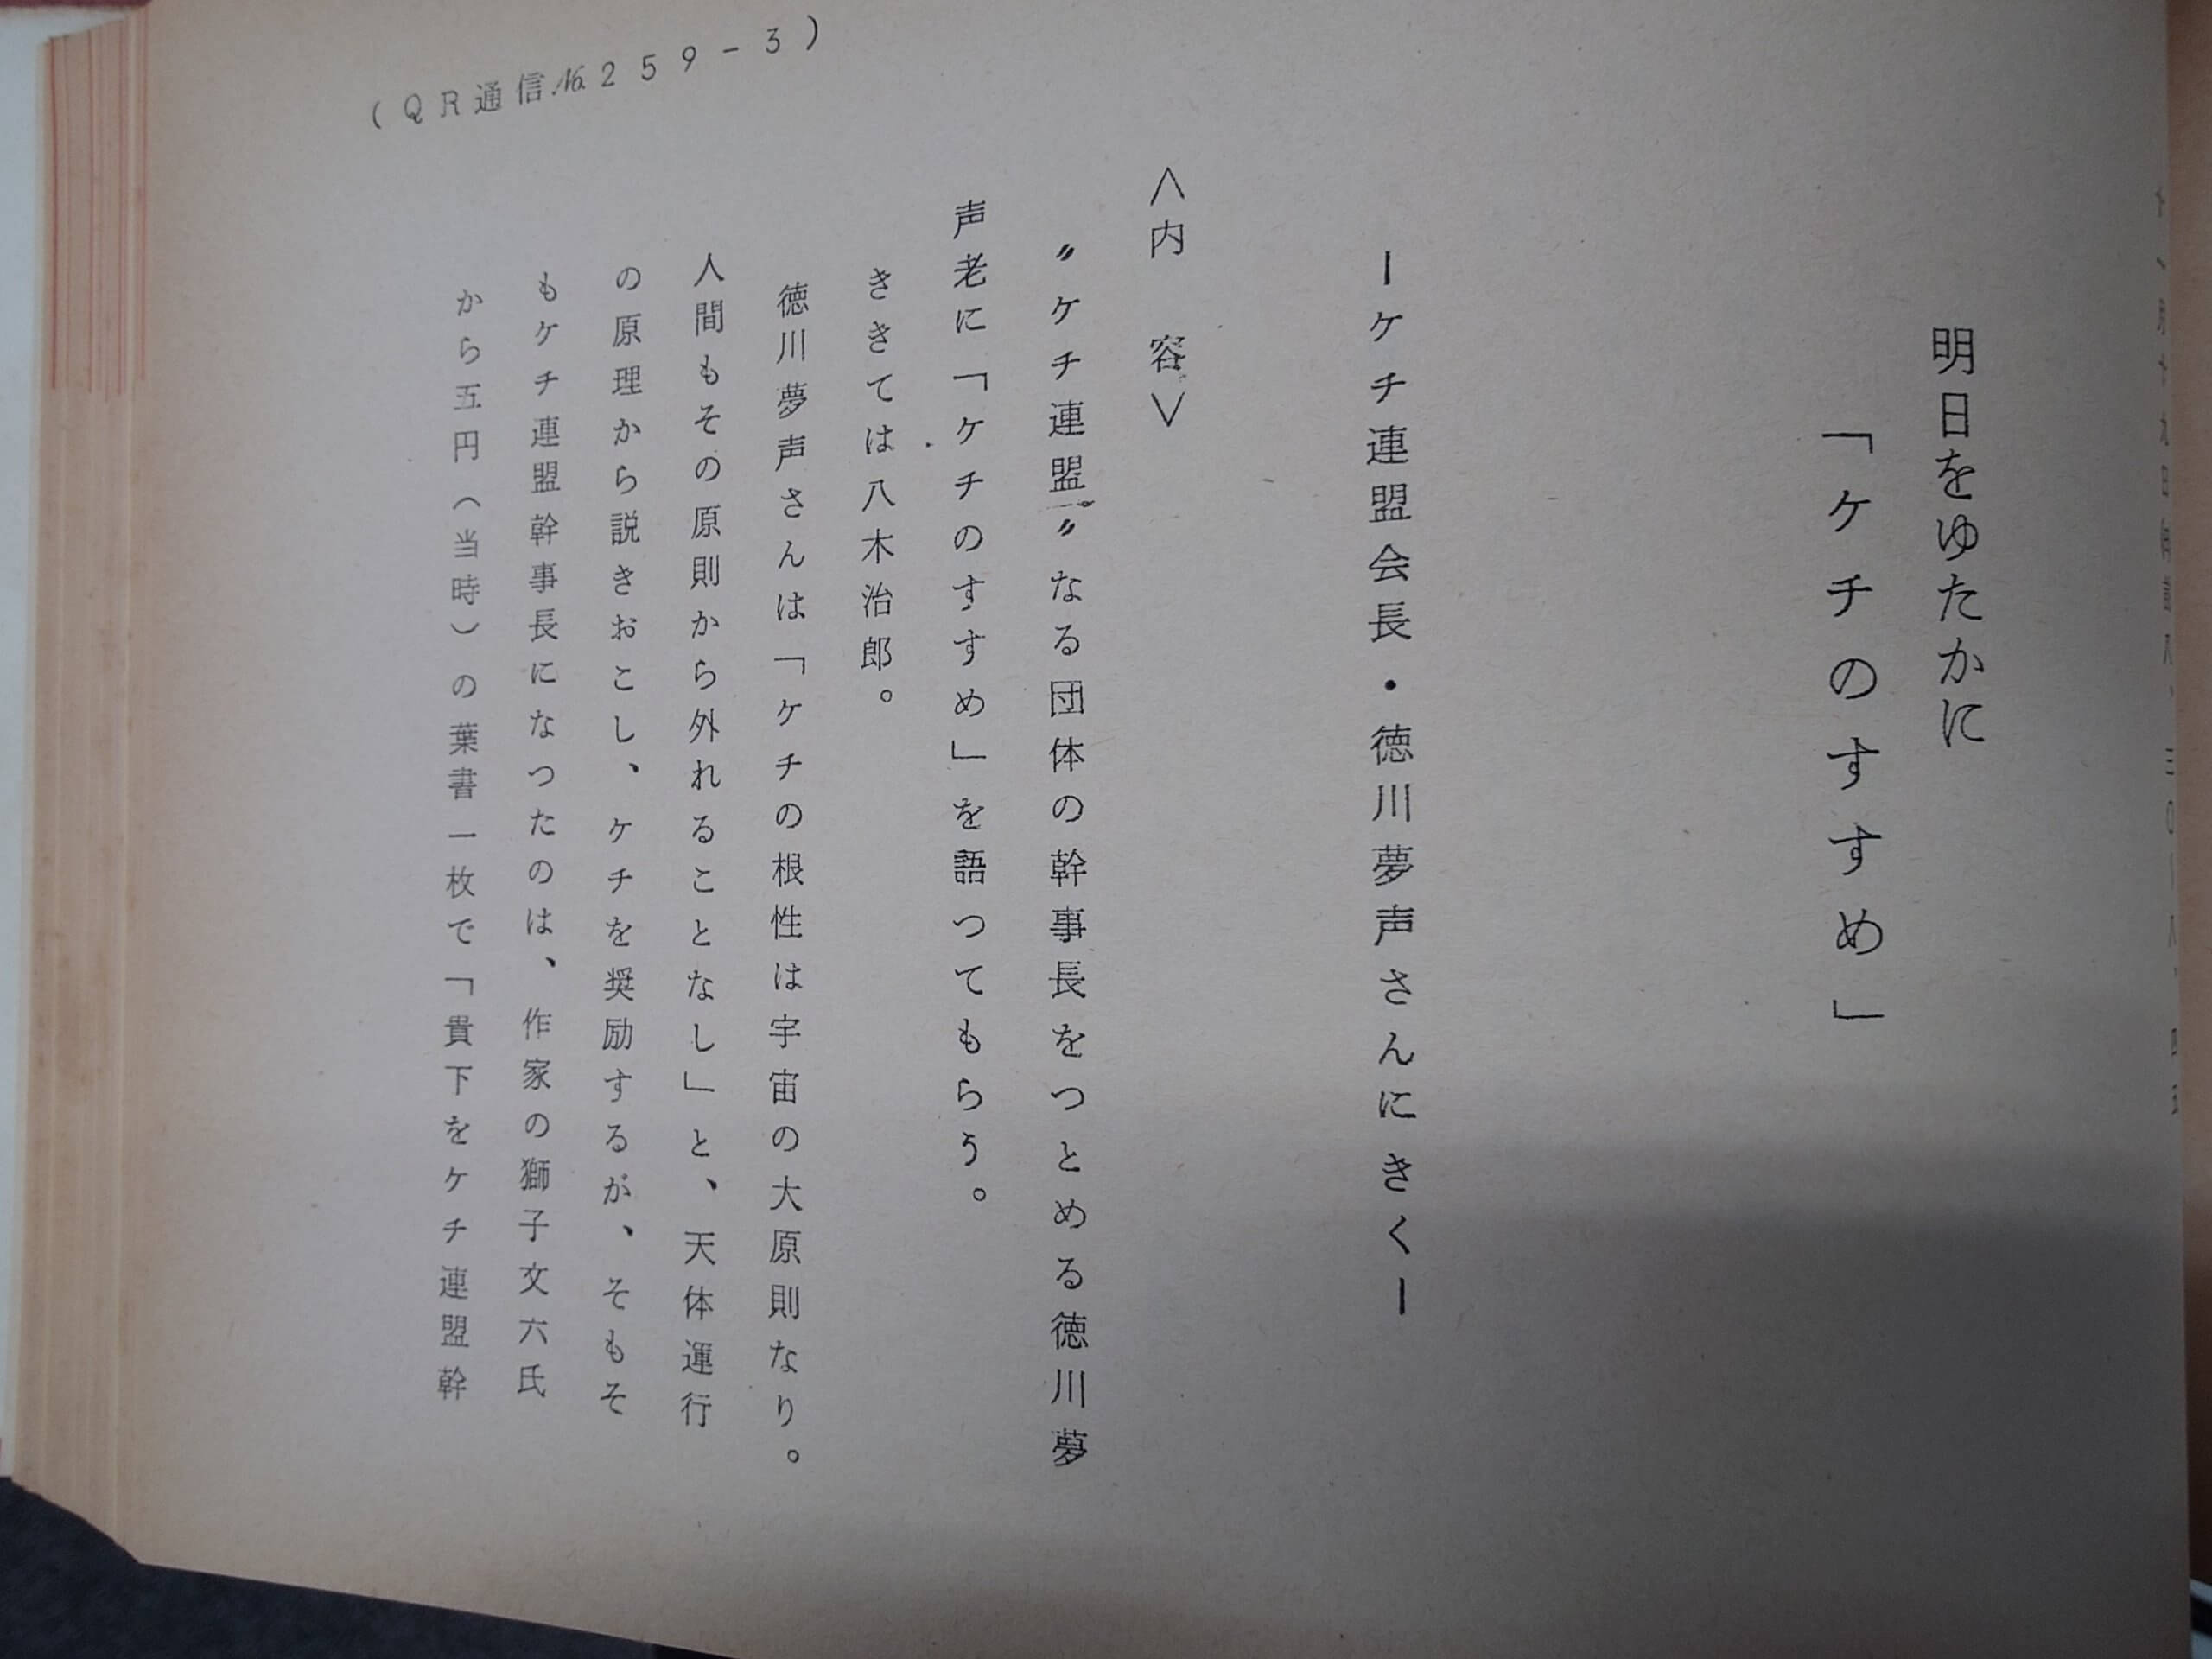 明日をゆたかに
「ケチのすすめ」
ーケチ連盟会長・徳川夢声さんにきくー
〈内　容〉
〃ケチ連盟〃なる団体の幹事長をつとめる徳川夢
声老に「ケチのすすめ」を語つてもらう。
ききては八木治郎。
徳川夢声さんは「ケチの根性は宇宙の大原則なり。
人間もその原則から外れることなし」と、天体運行
の原理から説きおこし、ケチを奨励するが、そもそ
もケチ連盟幹事長になつたのは、作家の獅子文六氏
から五円（当時）の葉書一枚で「貴下をケチ連盟幹
（QR通信№259-3）